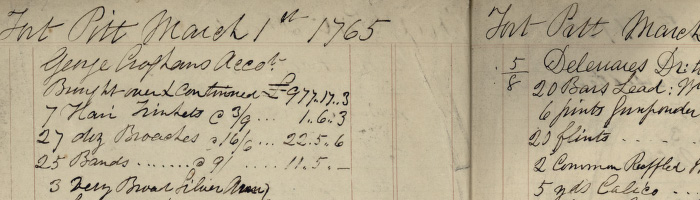 Fort Pitt March 1st 1765
George Croghans Accot.
Brought over & Continued £977.17.3
7 Hair Trinkets @ 3/9 ... 1.6.3
27 doz Broaches @ 16/6 ... 22.5.6
25 Bands ....... @ 9/ .... 11.5.-
3 Very Broad Silver Arm
Fort Pitt March
5/8 Delewares Dr. t
20 Bars Lead
6 pints Gunpowder
23 flints . . .
2 Common Ruffled
5 yds Calico . . .